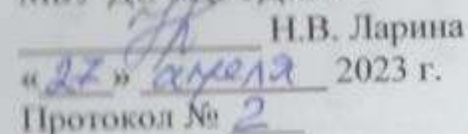 Н.В. Ларина
«27» апреля 2023 г.
Протокол № 2